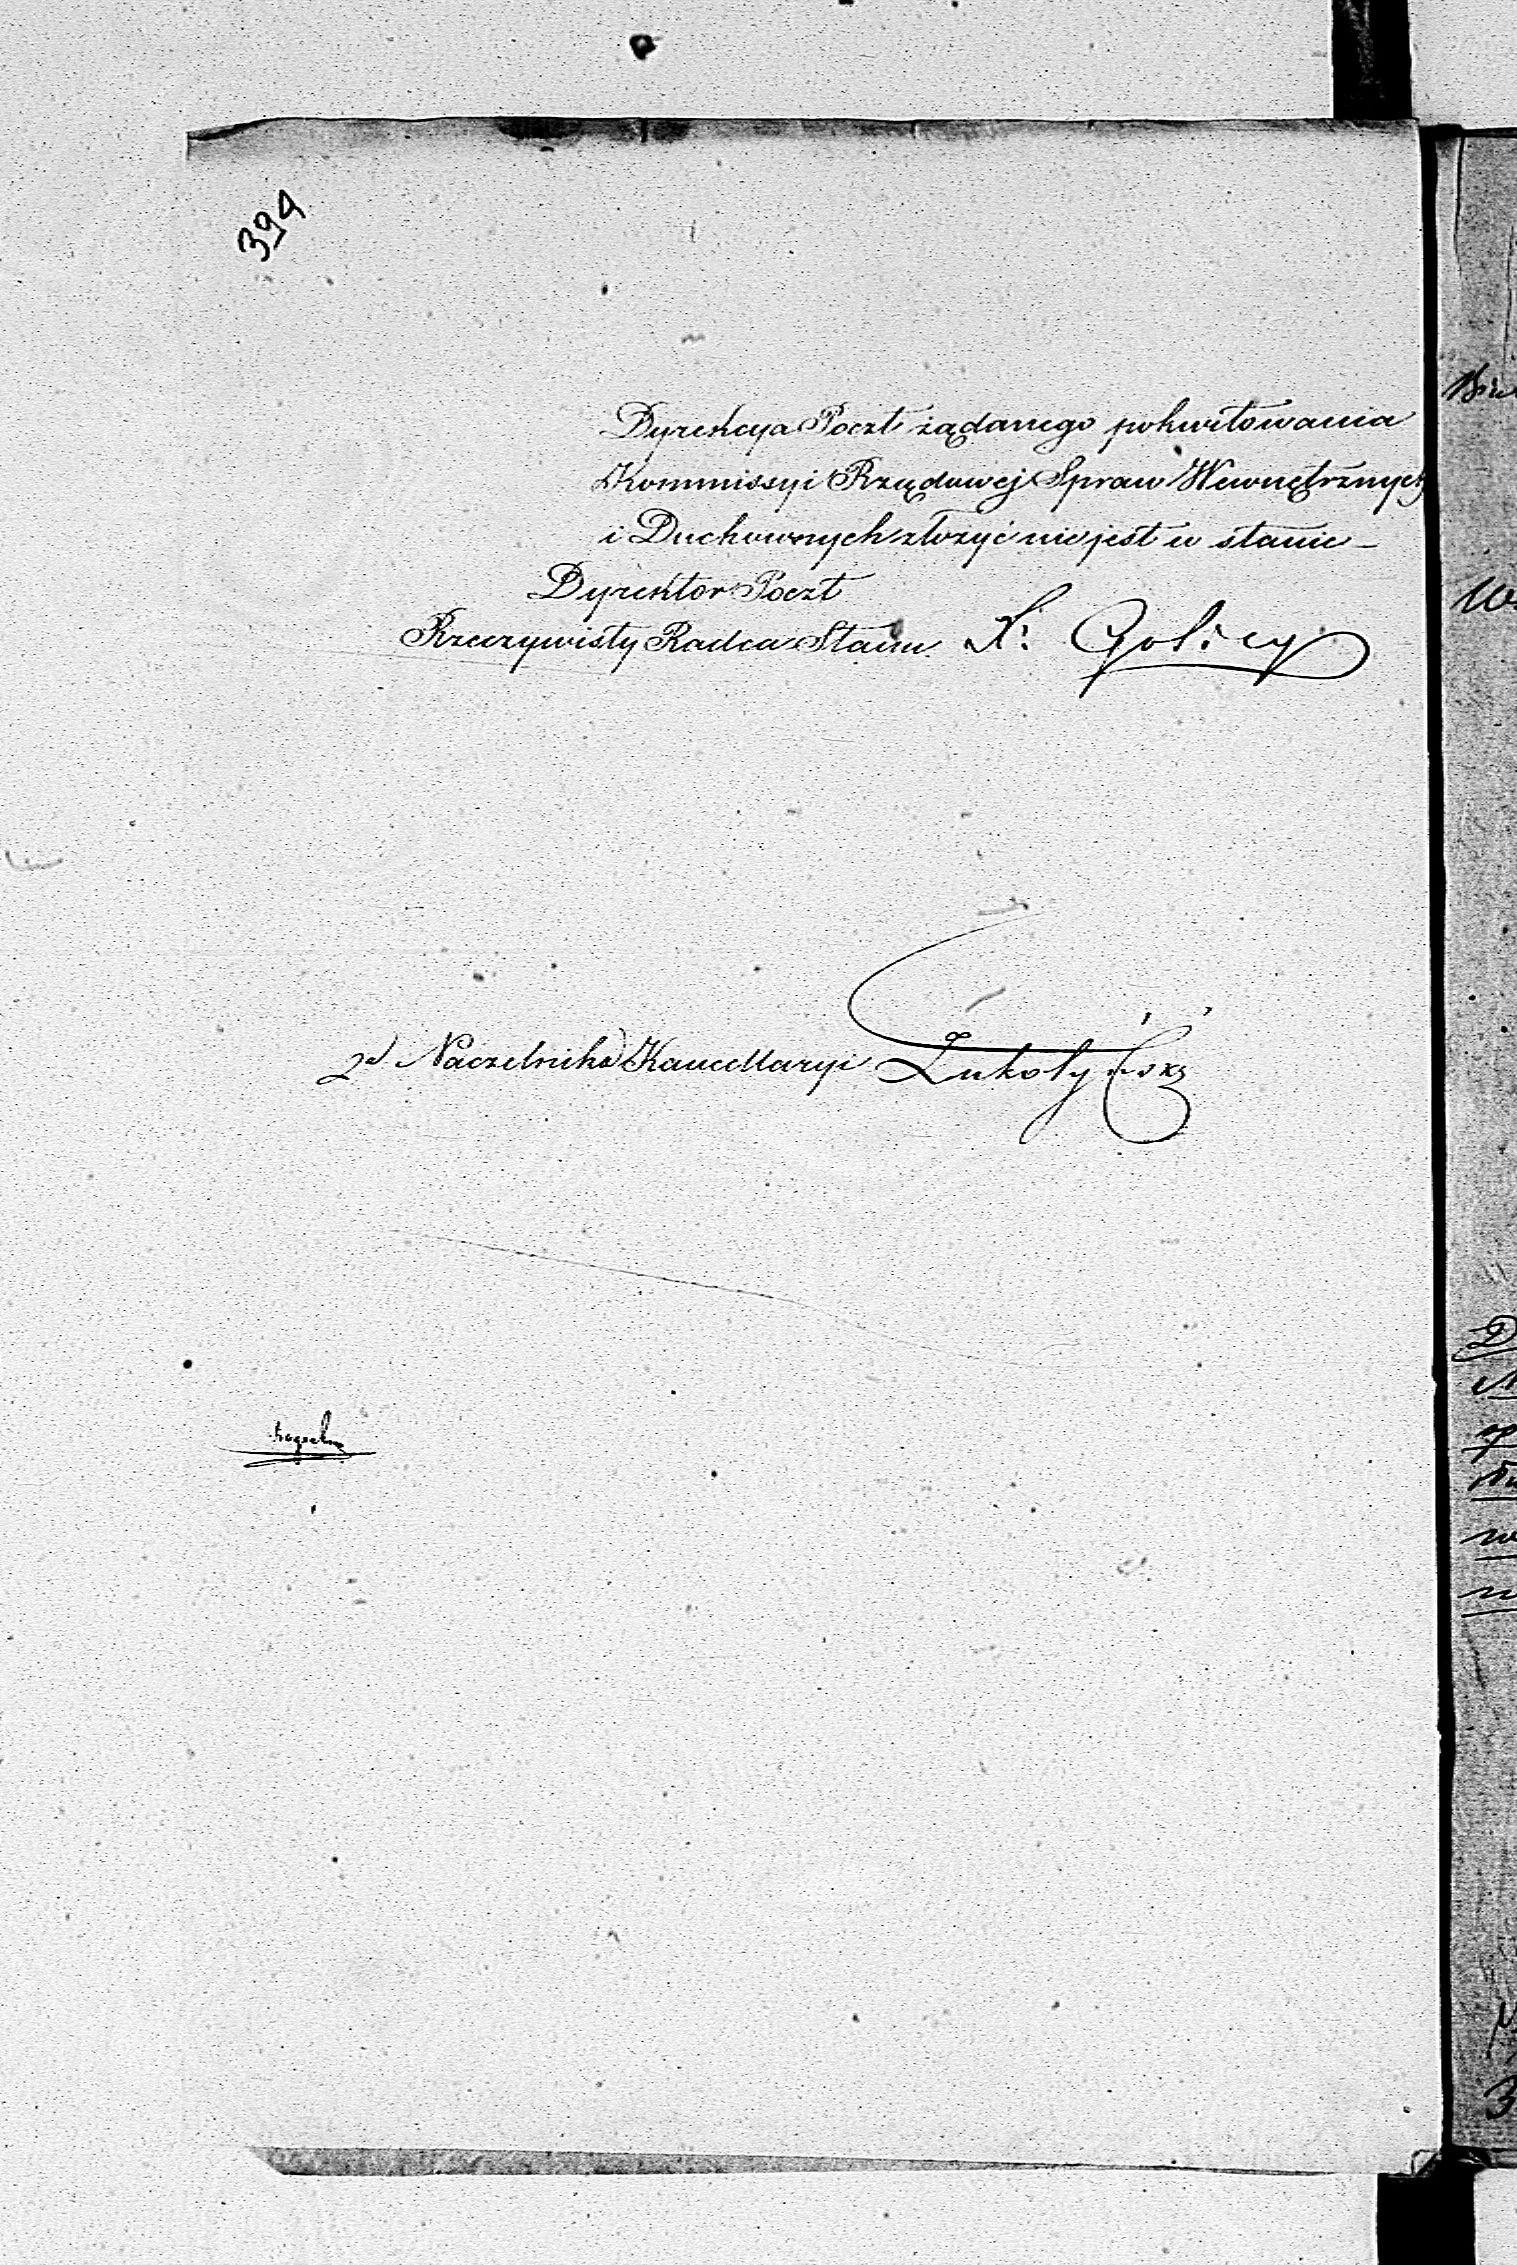 394
Dyrekcya Poczt żądanego pokwitowania
Kommissyi Rządowej Spraw Wewnętrznych
i Duchownych złożyć nie jest w stanie_
Dyrektor Poczt
Rzeczywisty Radca Stanu X: Golicy
zd Naczelnika Kancellaryi